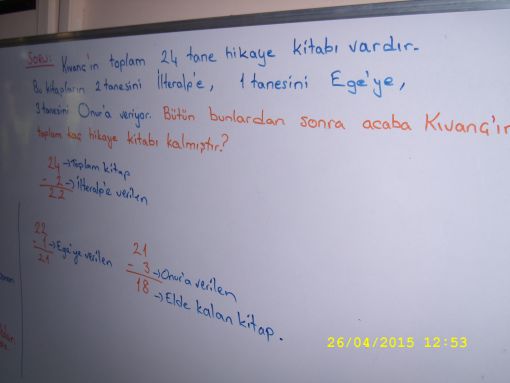 SORU: Kıvanç'ın toplam 24 tane hikaye kitabı vardır.
Bu kitapların 2 tanesini İlteralp'e, 1 tanesini Ege'ye,
3 tanesini Onur'a veriyor. Bütün bunlardan sonra acaba Kıvanç'ın
toplam kaç hikaye kitabı kalmıştır?
24 → Toplam kitap
- 2 → İlteralp'e verilen
22
22
- 1 → Ege'ye verilen
21
21
- 3 → Onur'a verilen
18 → Elde kalan kitap.
26/04/2015 12:53